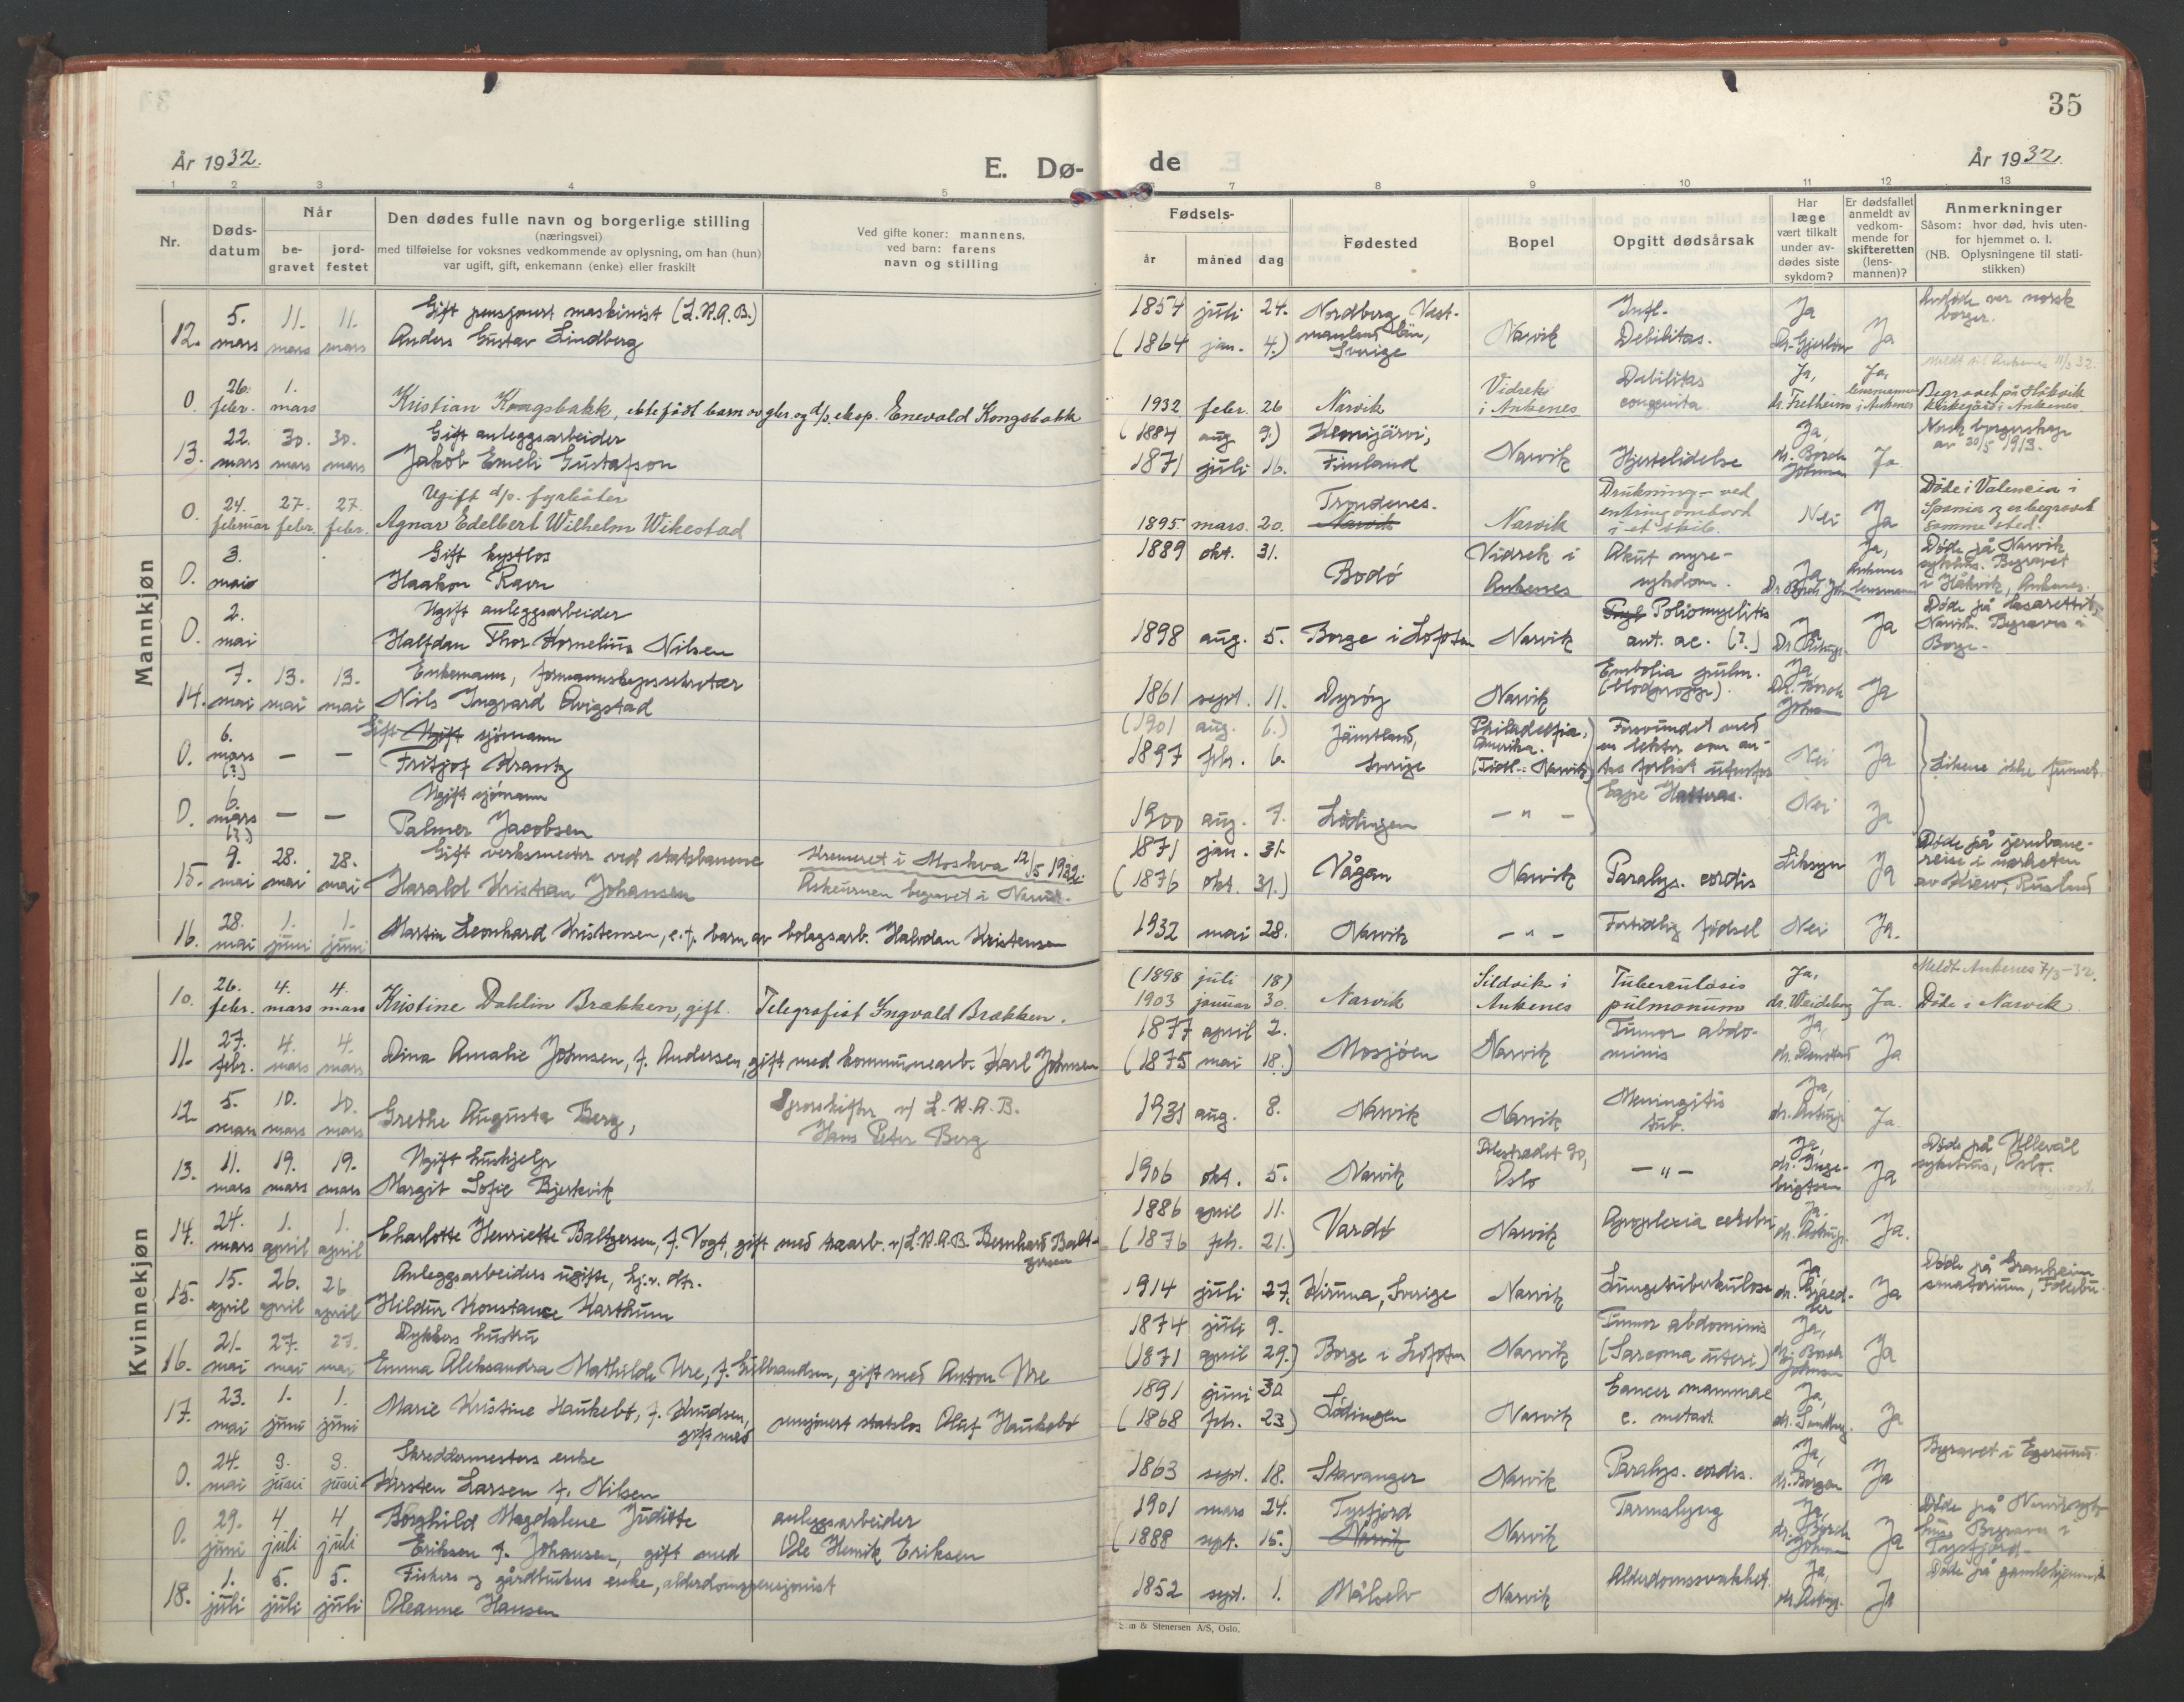 35
År 1932.
E. Dø-
de
År 1932.
1 2 3 4 5 6 7 8 9 10 11 12 13
Nr.
Døds-
datum
Når
be-
gravet
jord-
festet
Den dødes fulle navn og borgerlige stilling
(næringsvei)
med tilføielse for voksnes vedkommende av oplysning, om han (hun)
var ugift, gift, enkemann (enke) eller fraskilt
Ved gifte koner: mannens,
ved barn: farens
navn og stilling
Fødsels-
år måned dag
Fødested
Bopel
Opgitt dødsårsak
Har
læge
vært tilkalt
under av-
dødes siste
sykdom?
Er dødsfallet
anmeldt av
vedkom-
mende for
skifteretten
(lens-
mannen)?
Anmerkninger
Såsom: hvor død, hvis uten-
for hjemmet o. l.
(NB. Oplysningene til stati-
stikken)
Mannkjøn
5. 11. 11. Gift pensjonert maskinist (L.K.A.B.) 1854 juli 24. Nordberg, Vest- Infl. Ja Avdøde var norsk
borger.
12. mars mars mars Anders Gustav Lindberg (1864 jan. 4.) manland län, Narvik Debilitas. Ja
Sverige
Meldt til Ankenes 11/3 32.
26. 1. Vidrek Debilitas Ja, Ja, lensmannen
0. febr. mars Kristian Kongsbakk, ektefødt barn av gbr. og d/s eksp. Enevald Kongsbakk 1932 febr. 26 Narvik i Ankenes congenita dr. Fretheim i Ankenes Begravet på Håkvik
kirkegård i Ankenes
22. 30. 30. Gift anleggsarbeider (1884 aug 9.) Kemijärvi, Ja, Norsk borgerskap
av 20/5 1913.
13. mars mars mars Jakob Emeli Gustafson 1871 juli 16. Finland Narvik Hjertelidelse dr. Borch Johnsen Ja
24. 27. 27. Ugift d/s. fyrbøter Trondenes. Drukning ved Døde i Valencia i
0. februar febr. febr. Agnar Edelbert Wilhelm Wikestad 1895 mars. 20. Narvik Narvik entring ombord Nei Ja Spania og er begravet
i et skib. samme sted.
3. Gift kystlos 1889 okt. 31. Vidrek i Akut nyre- Ja, Døde på Narvik
0. mars Haakon Ravn Bodø Ankenes sykdom. Ja Ankenes lensmann sykehus. Begravet
i Håkvik, Ankenes.
2. Ugift anleggsarbeider Poliomyelitis Døde på lasarettet,
0. mai Halfdan Thor Kornelius Nilsen 1898 aug. 5. Borge i Lofoten Narvik ant. ac. (?) Ja Ja Narvik. Begraves i
Borge.
7. 13. 13. Enkemann, formannskapssekretær Embolia pulm. Ja,
14. mai mai mai Nils Ingvard Qvigstad 1861 sept. 11. Dyrøy Narvik (blodpropp). Dr. Borch Johnsen Ja
6. Gift Ugift sjømann (1901 aug. 6.) Jämtland, Philadelfia, Forsvundet med
0. mars — — Fritjof Krantz 1897 febr. 6. Sverige Amerika. en lektor som an- Nei Ja Likene ikke funnet.
(?) (Tidl. i Narvik) tas forlist utenfor
6. Ugift sjømann Cape Hatteras.
0. mars — — Palmer Jacobsen 1900 aug. 7. Lødingen — " — Nei Ja
(?)
9. 28. 28. Gift verksmester ved statsbanene Kremeret i Moskva 12/5 1932. 1871 jan. 31. Døde på jernbane-
15. mai mai mai Harald Kristian Johansen Askeurnen begravet i Narvik. (1876 okt. 31.) Vågan Narvik Paralys. cordis Liksyn Ja reise i nærheten
av Kiew, Rusland
28. 1. 1.
16. mai juni juni Martin Leonhard Kristensen, e.f. barn av bolagsarb. Halvdan Kristensen 1932 mai 28. Narvik — " — Fortidlig fødsel Nei Ja.
Kvinnekjøn
26. 4. 4. (1898 juli 18) Sildvik i Tuberculosis Ja, Meldt Ankenes 7/3-32.
10. febr. mars mars Kristine Dahlin Brækken, gift. Telegrafist Ingvald Brækken. 1903 januar 30. Narvik Ankenes pulmonum dr. Waideberg Ja. Døde i Narvik
27. 4. 4. 1877 april 2. Tumor abdo- Ja,
11. febr. mars mars Dina Amalie Johnsen, f. Andersen, gift med kommunearb. Karl Johnsen (1875 mai 18.) Mosjøen Narvik minis Ja
5. 10. 10. Sporskifter v/ L.K.A.B. Meningitis Ja,
12 mars mars mars Grethe Augusta Berg, Hans Peter Berg 1931 aug. 8. Narvik Narvik tub. Ja
11. 19. 19. Ugift hushjelp Pilestredet 90, Ja, Døde på Ullevål
13. mars mars mars Margit Sofie Bjerkvik 1906 okt. 5. Narvik Oslo — " — dr. Inge-brigtsen Ja sykehus, Oslo.
24. 1. 1. 1886 april 11. Ja.
14. mars april april Charlotte Henriette Baltzersen, f. Vogt, gift med skarb. v/L.K.A.B. Bernhard Balt-zersen (1876 feb. 21.) Vardø Narvik Apoplexia cerebri Ja.
15. 26. 26 Anleggsarbeiders ugifte, hj.v. dtr. Ja, Døde på Granheim
15. april april april Hildur Konstanse Karthum 1914 juli 27. Kiruna, Sverige Narvik Lungetuberkulose Ja sanatorium, Follebu.
21. 27. 27. Dykkers hustru 1874 juli 9. Tumor abdominis Ja,
16. mai mai mai Emma Aleksandra Mathilde Ure, f. Gulbrandsen, gift med Anton Ure (1871 april 29.) Borge i Lofoten Narvik (Sarcoma uteri) dr. Borch Johnsen Ja
23. 1. 1. 1891 juni 30 Cancer mammae Ja,
17. mai juni juni Marie Kristine Haukebø, f. Knudsen, gift med pensjonert statslos Oluf Haukebø (1868 feb. 23) Lødingen Narvik c. metast. Ja
24. 3. 3. Skreddermesters enke Ja, Begravet i Egersund.
0. mai juni juni Kirsten Larsen f. Nilsen 1863 sept. 18. Stavanger Narvik Paralys. cordis. dr. Borgen Ja
29. 4 4 Borghild Magdalene Juditte anleggsarbeider 1901 mars 24. Tysfjord Tarmslyng Ja, Døde på Narvik syke-
0. juni juli juli Eriksen f. Johansen, gift med Ole Henrik Eriksen (1888 sept. 15.) Narvik Narvik dr. Borch Johnsen Ja hus Begraves i
Tysfjord.
1. 5. 5. Fiskers og gårdbrukers enke, alderdomspensjonist Ja, Døde på gamlehjemmet
18. juli juli juli Oleanne Hansen 1852 sept. 1. Målselv Narvik Alderdomssvakhet. Ja
& Stenersen A/S, Oslo.